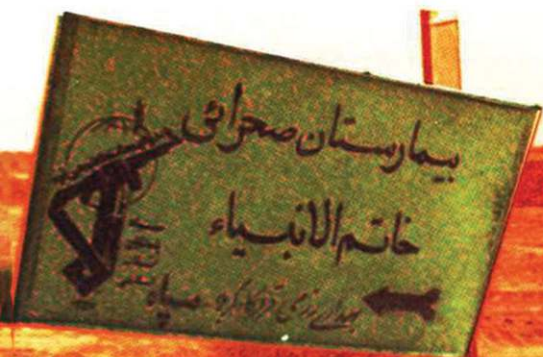 بیمارستان صحرائی
خاتم الانبیاء
بهداری رزمی قرارگاه کربلا سپاه